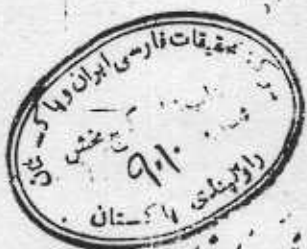 مرکز تحقیقات فارسی ایران و پاکستان
گنج بخش
۹۰۱۰
راولپندی پاکستان